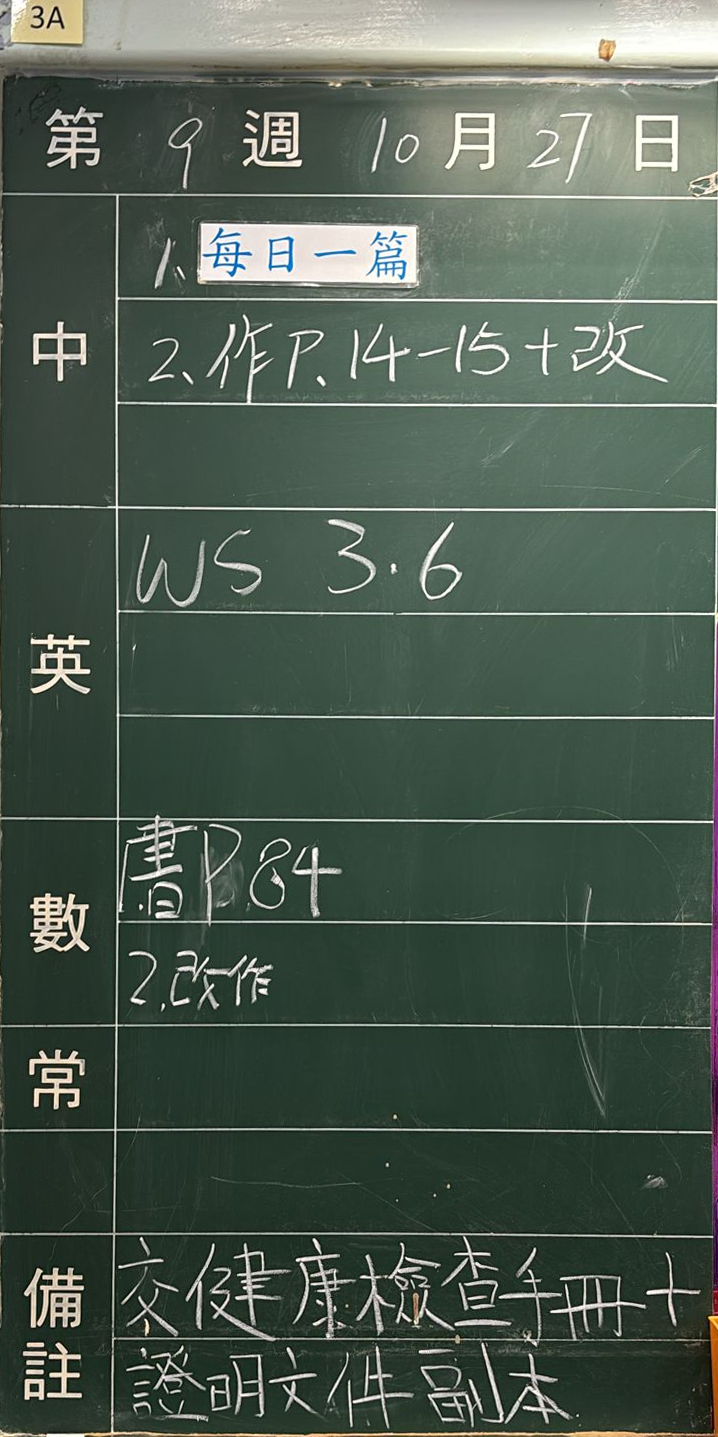 3A
第 9 週 10 月 27 日
中
1、每日一篇
2、作P、14-15+改
英
WS 3.6
數
書P.84
2.改作
常
備註
交健康檢查手冊+
證明文件副本